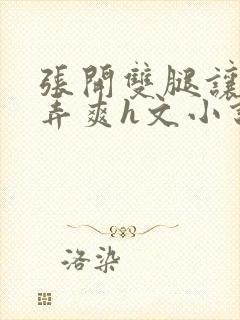 張開雙腿讓
弄爽h文小
洛染